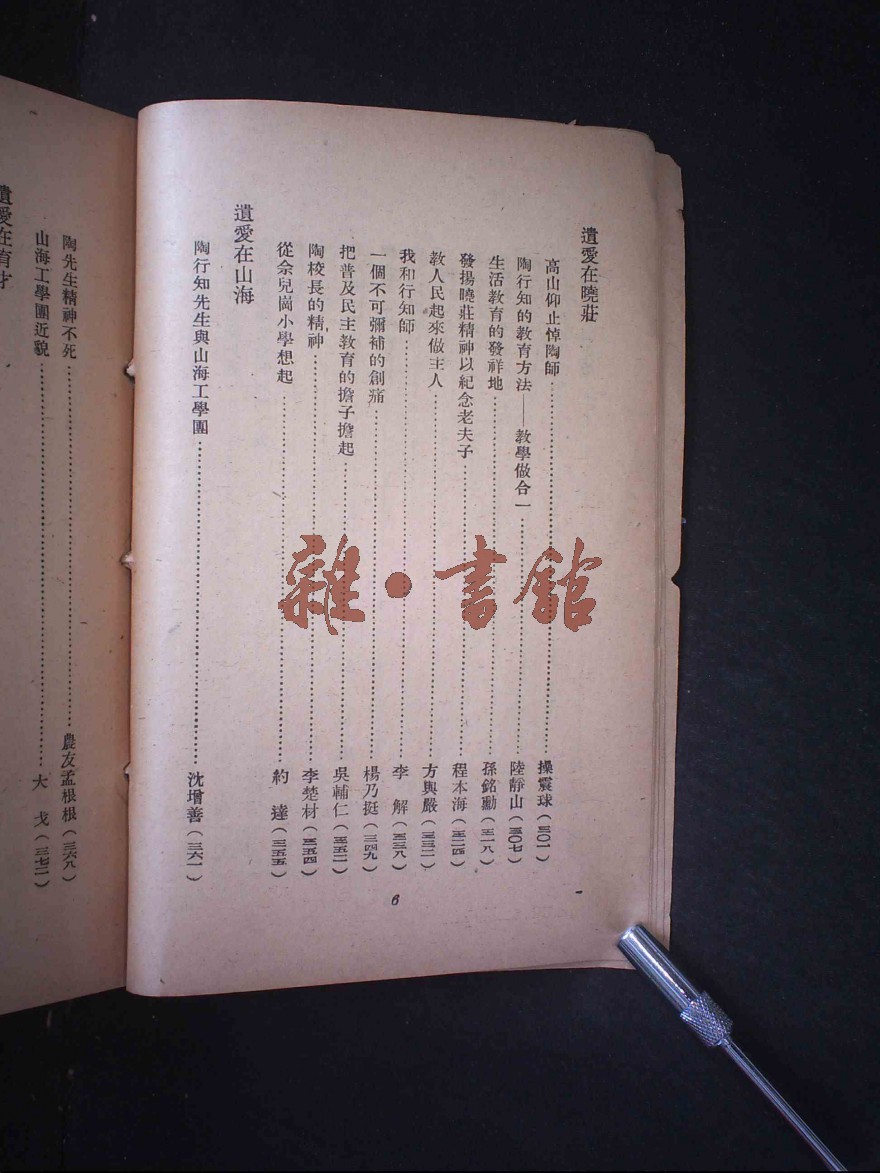 遺愛在曉莊
高山仰止悼陶師 操震球（三〇一）
陶行知的教育方法——教學做合一 陸靜山（三〇七）
生活教育的發祥地 孫銘勳（三一八）
發揚曉莊精神以紀念老夫子 程本海（三二四）
教人民起來做主人 方與嚴（三三二）
我和行知師 李解（三三八）
一個不可彌補的創痛 楊乃挺（三四九）
把普及民主教育的擔子擔起 吳輔仁（三五二）
陶校長的精神 李楚材（三五四）
從佘兒崗小學想起 約達（三五五）
遺愛在山海
陶行知先生與山海工學團 沈增善（三六一）
6
陶先生精神不死 農友孟根根（三六八）
山海工學團近貌 大戈（三七二）
遺愛在育才
雜·書館